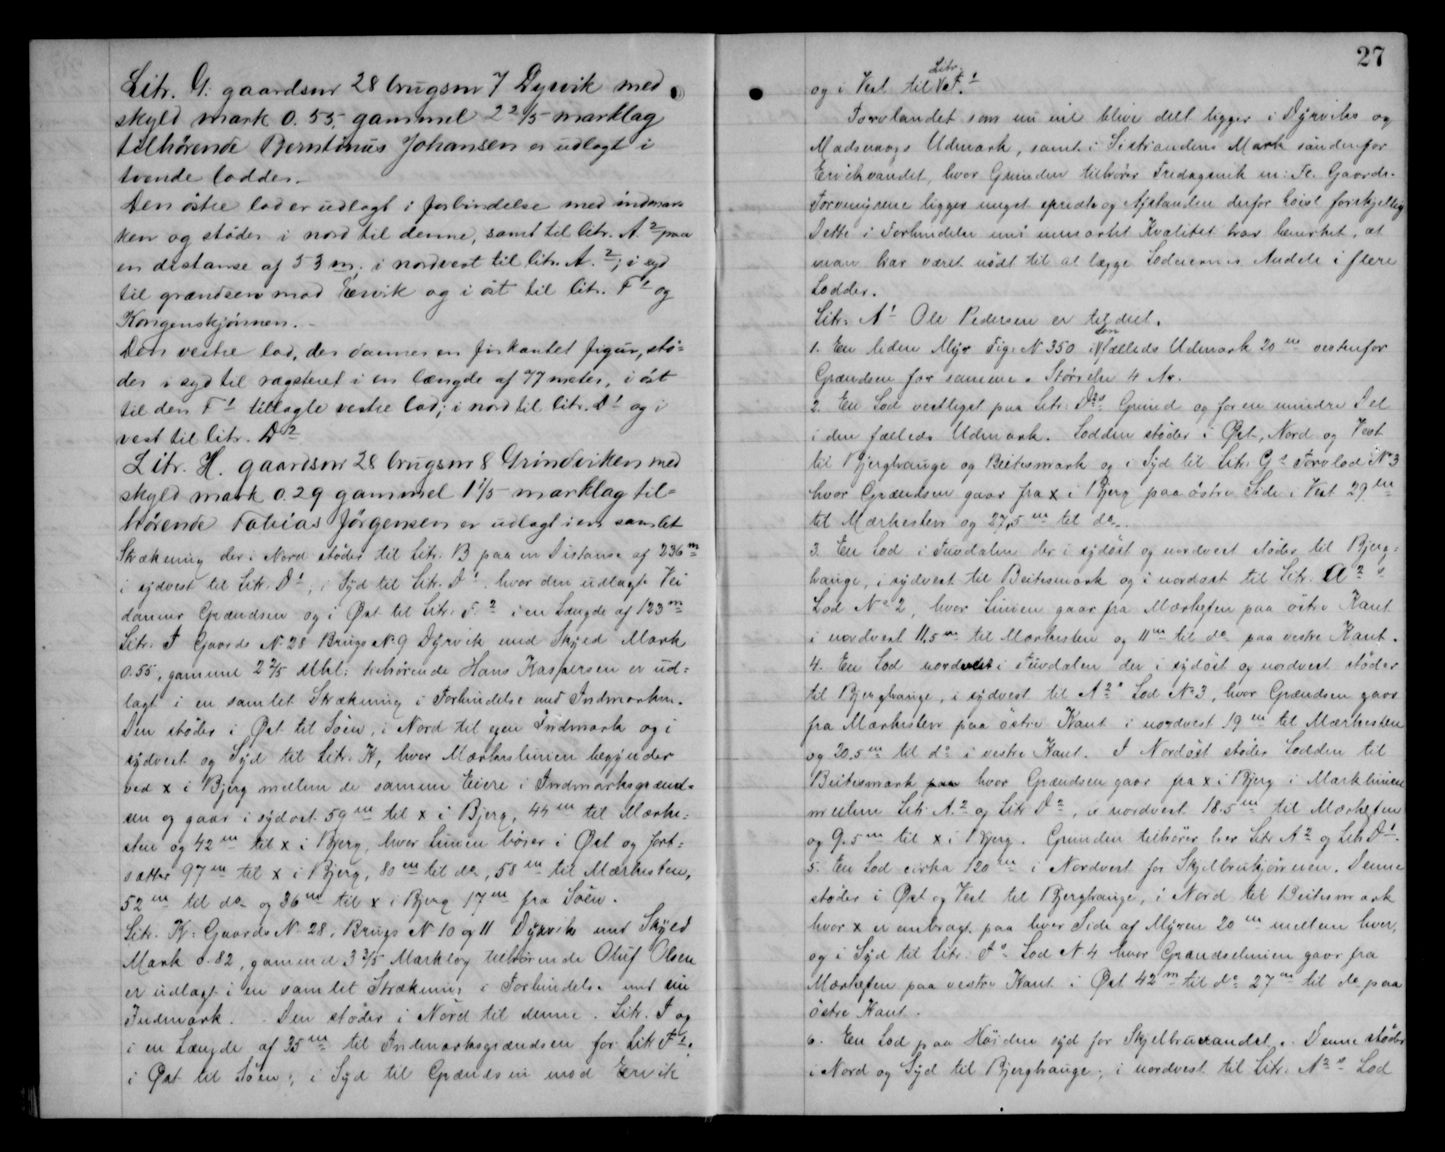 Litr. G: gaardsnr 28 brugsnr 7 Dyrvik med
skyld mark 0.55, gammel 2 2/5 marklag
tilhørende Berntinus Johansen er udlagt i
tvende lodder.
Den østre lod er udlagt i forbindelse med indmar-
ken og støder i nord til denne, samt til litr. A 2 paa
en distanse af 53 m, i nordvest til litr. A. 2; i syd
til grændsen mod Ervik og i öst til litr. F 1 og
Kongenskjønnen.
Den vestre lod, der danner en firkantet figur, stø-
der i syd til ragsteret i en længde af 77 meter, i öst
til den F 1 tillagte vestre lod; i nord til litr. D 1 og i
vest til litr. D 2
Litr. H. gaardsnr 28 brugsnr 8 Grindviken med
skyld mark 0.29 gammel 1 1/5 marklag til-
hørende Tobias Jørgensen er udlagt i en samlet
Strækning der i Nord støder til Litr. B paa en Distanse af 236 m
i sydvest til Litr. D 1, i Syd til Litr. D 1 hvor den udlagte Vei
danner Grændsen og i Øst til Litr. F 2 i en Længde af 123 m
Litr. I Gaards No 28 Brugs No 9 Dyrvik med Skyld Mark
0.55, gammel 2 2/5 Mkl: tilhørende Hans Kaspersen er ud-
lagt i en samlet Strækning i Forbindelse med Indmarken.
Den støder i Øst til Søen, i Nord til egen Indmark og i
sydvest og Syd til Litr. K, hvor Mærkeslinien begynder
ved x i Bjerg mellem de samme Eiere i Indmarksgrænd-
sen og gaar i sydost 59 m til x i Bjerg, 44 m til Mærke-
sten og 42 m til x i Bjerg, hvor Linien bøier i Øst og fort-
sætter 97 m til x i Bjerg, 80 m til do, 58 m til Mærkesten,
52 m til do og 36 m til x i Bjerg 17 m fra Søen.
Litr. K: Gaards No 28, Brugs No 10 og 11 Dyrvik med Skyld
Mark 0.82, gammel 3 3/5 Marklog tilhørende Oluf Olsen
er udlagt i en samlet Strækning i Forbindelse med sin
Indmark. Den støder i Nord til denne. Litr. I og
i en Længde af 35 m til Indmarksgrændsen for Litr F 2.
i Øst til Søen; i Syd til Grændsen mod Ervik
27
og i Vest til Litr. F. 1
Torvlandet som nu vil blive delt ligger i Dyrviks og
Madsvaags Udmark, samt i Sistrandens Mark søndenfor
Ervikvandet, hvor Grunden tilhører Fredagsvik m: Fl. Gaarde.
Torvmyrene ligger meget spredte og Afstanden derfor høist forskjellig
Dette i Forbindelse med uensartet Kvalitet har bevirket, at
man har været nødt til at lægge Lodeiernes Andele i flere
Lodder.
Litr. A 1 Ole Pedersen er tildelt.
1. En liden Myr Fig: No 350 i den fælleds Udmark 20 m vestenfor
Grændsen for samme. Størrelse 4 Ar.
2. En Lod vestligst paa Litr. D 2s Grund og for en mindre Del
i den fælleds Udmark. Lodden støder i Øst, Nord og Vest
til Bjerghauge og Beitesmark og i Syd til Litr. G s Torvlod No 3
hvor Grændsen gaar fra x i Bjerg paa östre Side i Vest 29 m
til Mærkesten og 27,5 m til do.
3. En Lod i Tuvdalen der i sydöst og nordvest støder til Bjerg-
hauge, i sydvest til Beitesmark og i nordost til Litr. A 2 s
Lod No 2, hvor Linien gaar fra Mærkesten paa östre Kant
i nordvest 11,5 m til Mærkesten og 11 m til do paa vestre Kant.
4. En Lod nordvest i Tuvdalen der i sydöst og nordvest støder
til Bjerghauge, i sydvest til A 2 s Lod No 3, hvor Grændsen gaar
fra Mærkesten paa östre Kant i nordvest 19 m til Mærkesten
og 20,5 m til do i vestre Kant. I Nordöst støder Lodden til
Beitesmark hvor Grændsen gaar fra x i Bjerg i Marklinien
mellem Litr. A. 2 og Litr D 2, i nordvest 18.5 m til Mærkesten
og 9.5 m til x i Bjerg. Grunden tilhører her Litr A 2 og Litr D 1.
5. En Lod cirka 120 m i Nordvest for Skjelbruskjønnen. Denne
støder i Øst og Vest til Bjerghauge, i Nord til Beitesmark
hvor x er anbragt paa hver Side af Myren 20 m mellem hver,
og i Syd til Litr. I s Lod No 4 hvor Grændselinien gaar fra
Mærkesten paa vestre Kant i Øst 42 m til do 27 m til do paa
östre Kant.
6. En Lod paa Høiden syd for Skjelbruvandet. Denne støder
i Nord og Syd til Bjerghauge; i nordvest til Litr. A 2 s Lod